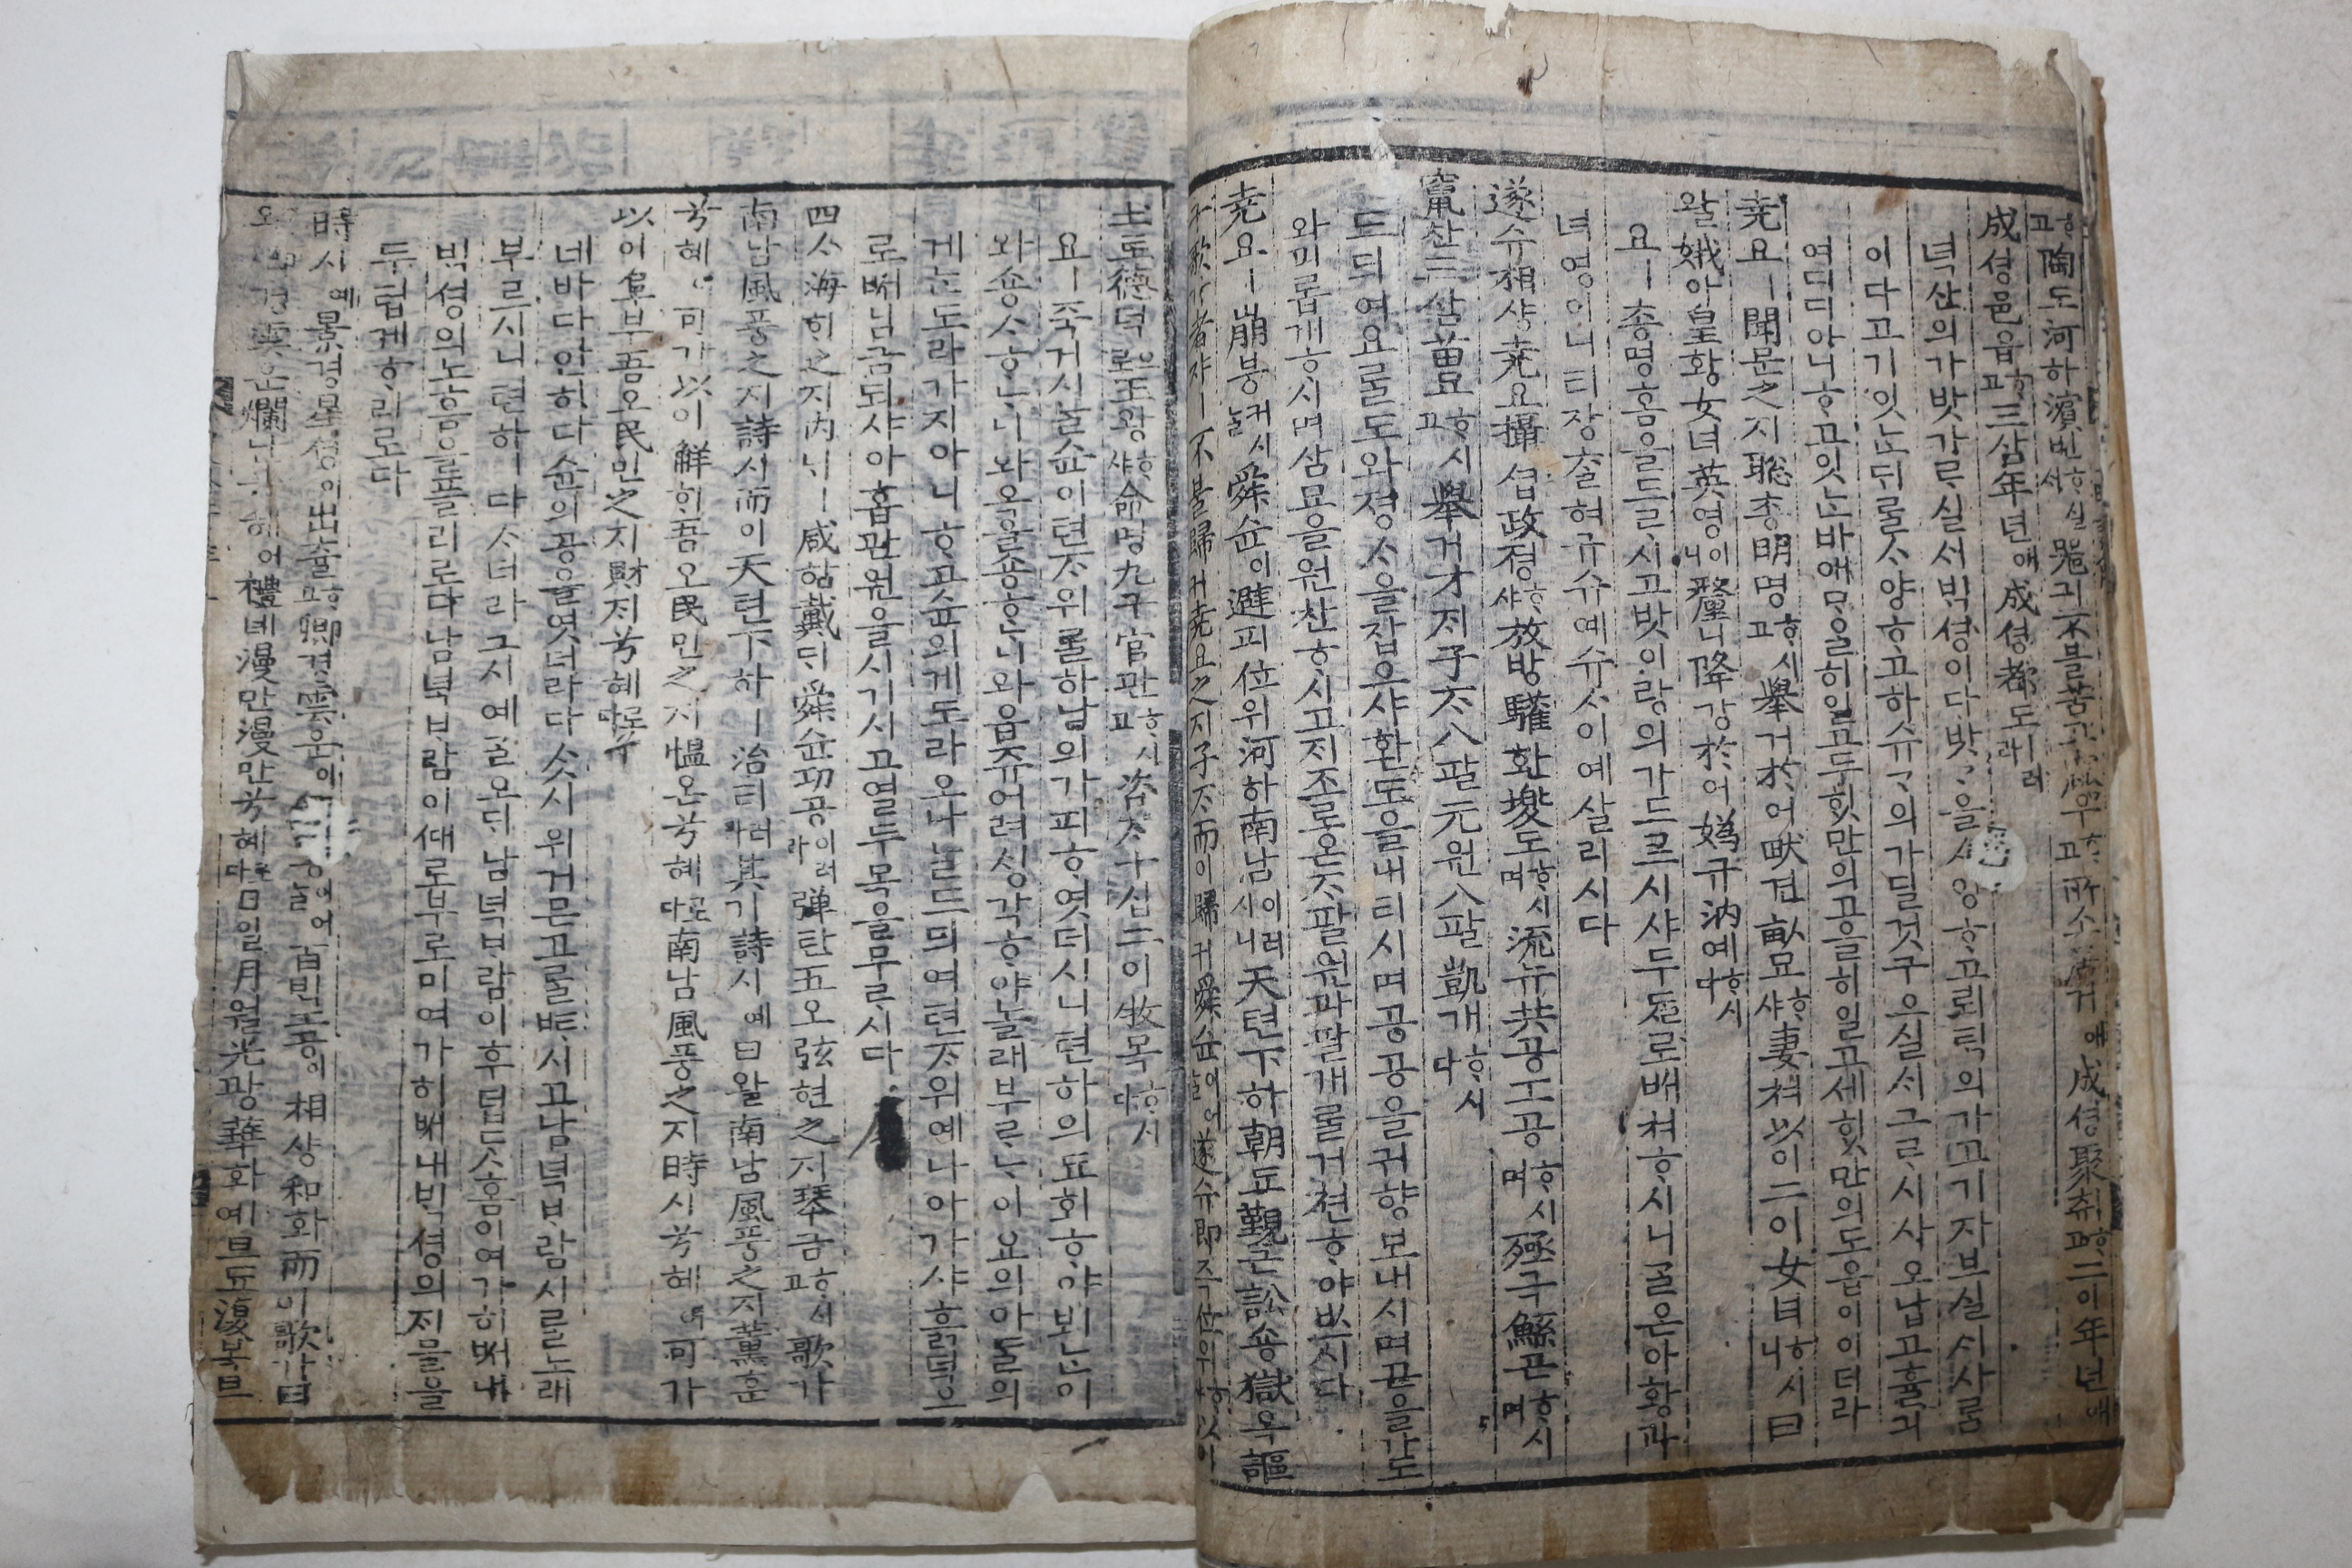 ᄒᆞ고陶도河하濱빈ᄒᆞ실ᄉᆡ器긔不블苦고窳우ᄒᆞ고所소居거애成셩聚취ᄒᆞ고二이年년애
成셩邑읍ᄒᆞ고三삼年년애成셩都도ㅣ러라
녁산의가밧가ᄅᆞ실ᄉᆡᄇᆡᆨ셩이다밧ᄀᆞᆯᄉᆞ양ᄒᆞ고뢰ᄐᆡᆨ의가고기자브실ᄉᆡ사ᄅᆞᆷ
이다고기잇ᄂᆞᆫᄃᆡᄅᆞᆯᄉᆞ양ᄒᆞ고하슈ᄀᆞ의가딜것구으실ᄉᆡ그ᄅᆞ시사오납고흘긔
여디디아니ᄒᆞ고잇ᄂᆞᆫ바애ᄆᆞ을히일고두ᄒᆡᆺ만의고을히일고세ᄒᆡᆺ만의도읍이이더라
堯요ㅣ聞문之지聡총明명ᄒᆞ시고擧거於어畎견畝묘ᄒᆞ샤妻쳐以이二이女녀ᄒᆞ시니曰
왈娥아皇황女녀英영이니釐니降강於어嬀규汭예ᄒᆞ시다
요ㅣ총명홈을드ᄅᆞ시고밧이랑의가드르시샤두ᄯᆞᆯ로ᄡᅥ쳐ᄒᆞ시니ᄀᆞᆯ온아황과
녀영이니티장ᄎᆞᆯ혀규슈예슈ᄉᆞ이예살리시다
遂슈相샹堯요攝섭政졍ᄒᆞ샤放방驩환兠도ᄒᆞ시며流뉴共공工공ᄒᆞ시며殛극鯀곤ᄒᆞ시며
竄찬三삼苗묘ᄒᆞ시고擧거才ᄌᆡ子ᄌᆞ八팔元원八팔凱개ᄒᆞ시다
드ᄃᆡ여요ᄅᆞᆯ도와졍ᄉᆞᄅᆞᆯ잡으샤환도ᄅᆞᆯ내티시며공공을귀향보내시며곤을가도
와미롭게ᄒᆞ시며삼묘을원찬ᄒᆞ시고ᄌᆡ조로온ᄌᆞ팔원과팔개ᄅᆞᆯ거쳔ᄒᆞ야ᄡᅳ시다
堯요ㅣ崩붕커시ᄂᆞᆯ舜슌이避피位위河하南남이러시니天텬下하朝됴覲근訟숑獄옥謳
구歌가者쟈ㅣ不블歸귀堯요之지子ᄌᆞ而이歸귀舜슌이어ᄂᆞᆯ遂슈即즉位위ᄒᆞ샤以이
土토德덕으로王왕ᄒᆞ샤命명九구官관ᄒᆞ시고咨ᄌᆞ十십二이牧목ᄒᆞ시다
요ㅣ죽거시ᄂᆞᆯ슌이텬ᄌᆞ위ᄅᆞᆯ하남의가피ᄒᆞ엿더시니텬하의됴회ᄒᆞ야뵈ᄂᆞ니
와숑ᄉᆞᄒᆞᄂᆞ니와옥을숑ᄒᆞᄂᆞ니와읍쥬어려싱각ᄒᆞ야놀래부르ᄂᆞ니요의아ᄃᆞᆯ의
게ᄂᆞᆫ도라가지아니ᄒᆞ고슌의게도라오나ᄂᆞᆯ드ᄃᆡ여텬ᄌᆞ위예나아가샤흙덕으
로ᄡᅥ님금되샤아홉관원을시기시고열두목을무르시다
四ᄉᆞ海ᄒᆡ之지內ᄂᆡㅣ咸함戴ᄃᆡ舜슌功공이러라彈탄五오弦현之지琴금ᄒᆞ시고歌가
南남風풍之지詩시而이天텬下하ㅣ治티러라其기詩시예曰왈南남風풍之지薰훈
兮혜여可가以이觧ᄒᆡ吾오民민之지慍온兮혜로다南남風풍之지時시兮혜여可가
以이阜부吾오民민之지財ᄌᆡ兮혜로다
네바다안히다슌의공을엿더라다ᄉᆞᆺ시위거믄고ᄅᆞᆯᄩᆞ시고남녁ᄇᆞ람시ᄅᆞᆯ노래
부르시니텬하ㅣ다ᄉᆞ더라그시예ᄀᆞᆯ오ᄃᆡ남녁ᄇᆞ람이후텁듯ᄒᆞᆷ이여가히ᄡᅥ내
ᄇᆡᆨ셩의노ᄒᆞᆷ을플리로다남녁ᄇᆞ람이ᄣᅢ로부ᄅᆞ미여가히ᄡᅥ내ᄇᆡᆨ셩의ᄌᆡ믈을
두텁게ᄒᆞ리로다
時시예景경星셩이出츌ᄒᆞ고卿경雲운이 百ᄇᆡᆨ工공이相샹和화而이歌가曰
왈 雲운爛난 혜여禮녜漫만漫만兮혜로다日일月월光광華화예旦단復부旦